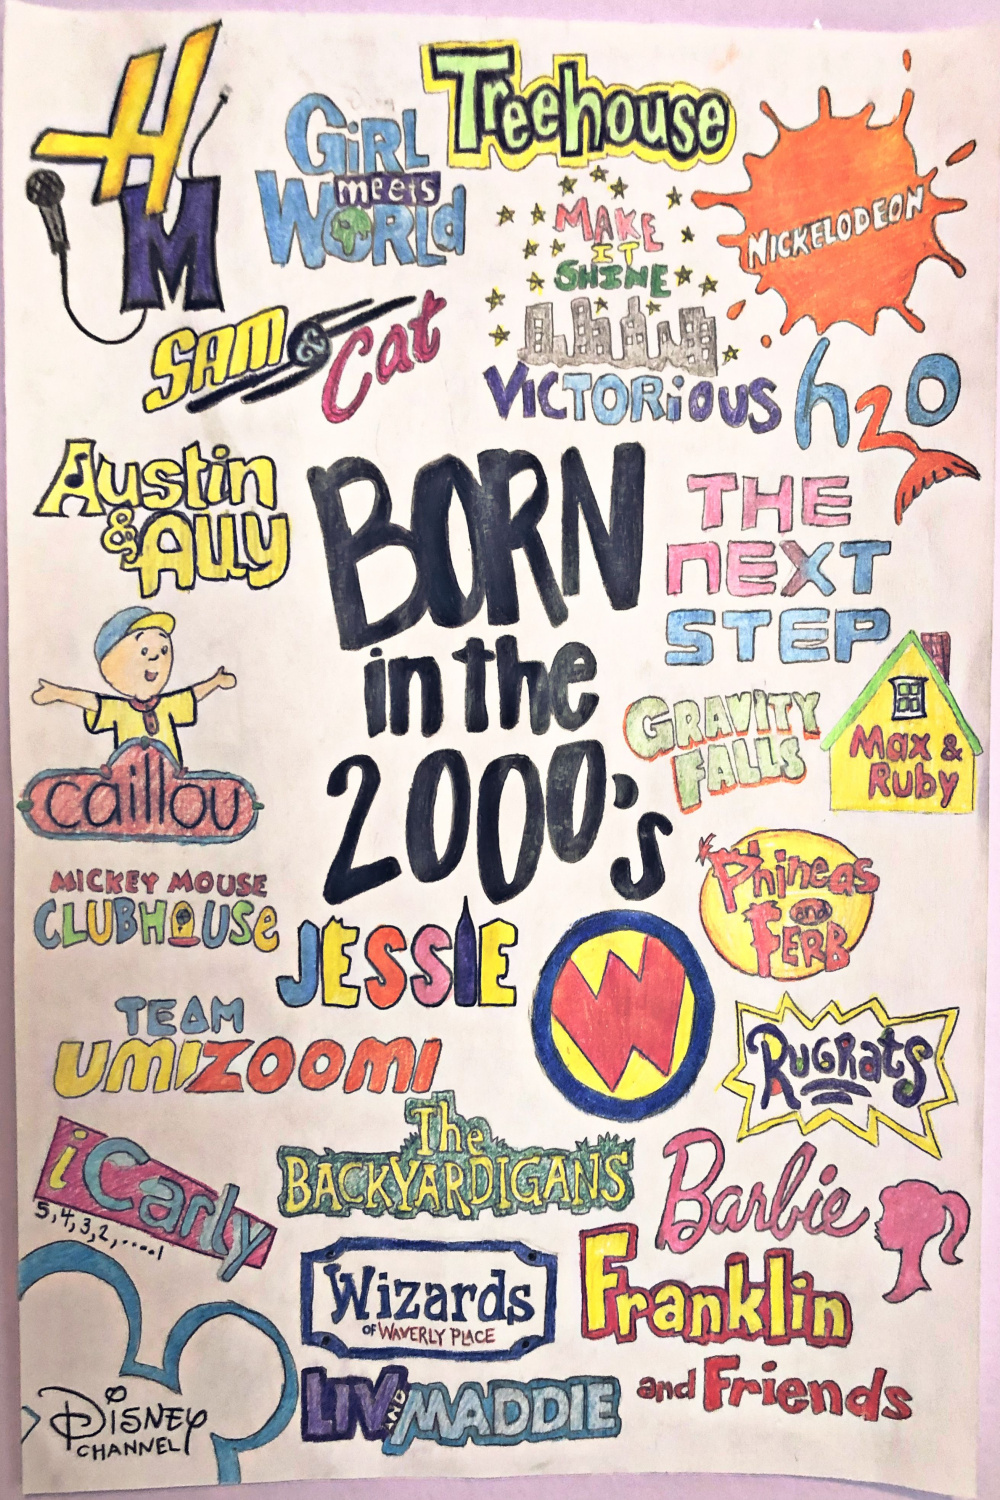 HM
Treehouse
GiRL
meets
WORLd
NICKELODEON
MAKE
IT
SHINE
VICTORiOUS
SAM & Cat
h2O
Austin
& Ally
BORN
in the
2000's
THE
NEXT
STEP
GRAVITY
FALLS
Max &
Ruby
caillou
Phineas
and
FERB
MICKEY MOUSE
CLUBHOUSE
JESSIE
W
TEAM
UMIZOOMI
RUGRatS
iCarly
5,4,3,2,....1
The
BACKYARDIGANS
Barbie
Wizards
OF WAVERLY PLACE
Franklin
and Friends
LIV AND MADDIE
DiSNEY
CHANNEL